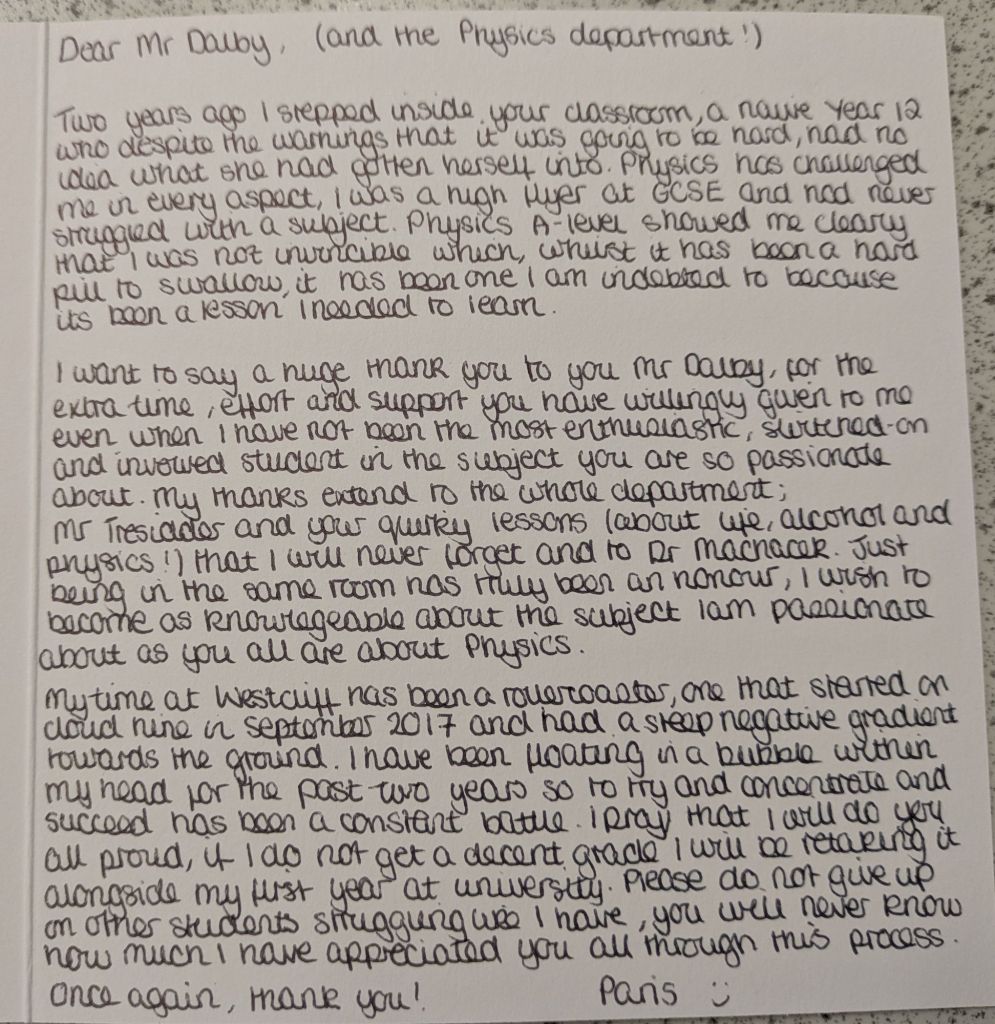 Dear Mr Dalby, (and the Physics department!)
Two years ago I stepped inside your classroom, a naive Year 12
who despite the warnings that it was going to be hard, had no
idea what she had gotten herself into. Physics has challenged
me in every aspect, I was a high flyer at GCSE and had never
struggled with a subject. Physics A-level showed me clearly
that I was not invincible which, whilst it has been a hard
pill to swallow, it has been one I am indebted to because
its been a lesson I needed to learn.
I want to say a huge thank you to you Mr Dalby, for the
extra time, effort and support you have willingly given to me
even when I have not been the most enthusiastic, switched-on
and involved student in the subject you are so passionate
about. My thanks extend to the whole department;
Mr Tresidder and your quirky lessons (about life, alcohol and
physics!) that I will never forget and to Dr Machacek. Just
being in the same room has truly been an honour, I wish to
become as knowlegeable about the subject I am passionate
about as you all are about Physics.
My time at Westcliff has been a rollercoaster, one that started on
cloud nine in September 2017 and had a steep negative gradient
towards the ground. I have been floating in a bubble within
my head for the past two years so to try and concentrate and
succeed has been a constant battle. I pray that I will do you
all proud, if I do not get a decent grade I will be retaking it
alongside my first year at university. Please do not give up
on other students struggling like I have, you will never know
how much I have appreciated you all through this process.
Once again, thank you! Paris :)